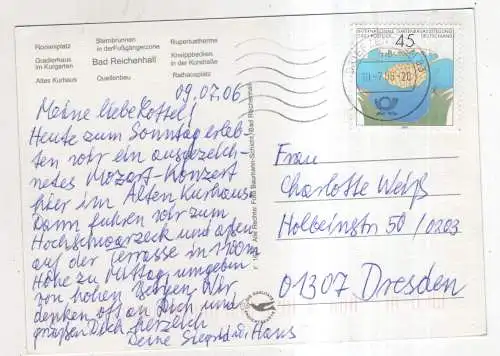 Florianiplatz
Steinbrunnen
in der Fußgängerzone
Rupertustherme
Gradierhaus
im Kurgarten
Bad Reichenhall
Kneippbecken
in der Kurstraße
Altes Kurhaus
Quellenbau
Rathausplatz
09.07.06
Meine liebe Lottel!
Heute zum Sonntag erleb-
ten wir ein ausgezeich-
netes Mozart-Konzert
hier im Alten Kurhaus.
Dann fuhren wir zum
Hochschwarzeck und aßen
auf der Terrasse in 1100m
Höhe zu Mittag, umgeben
von hohen Bergen. Wir
denken oft an Dich und
grüßen Dich herzlich
Deine Siegrid u. Hans
Alle Rechte: Foto Baumann-Schicht, Bad Reichenhall
INTERNATIONALE GARTENBAUAUSSTELLUNG
DEUTSCHLAND
45
Frau
Charlotte Weiß
Holbeinstr 50 / 0203
01307 Dresden